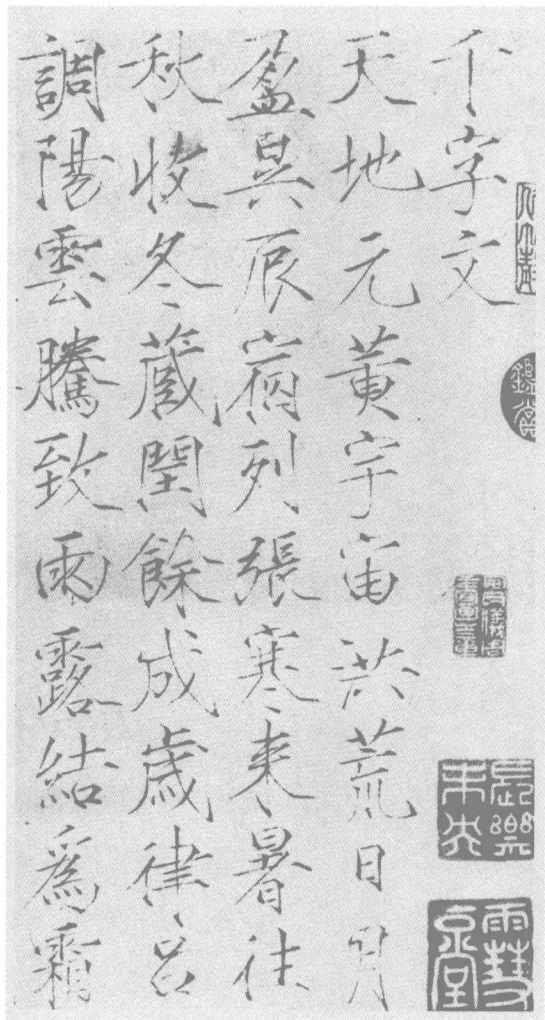 千字文
天地元黄宇宙洪荒日月
盈昃辰宿列張寒来暑往
秋收冬藏閏餘成歲律呂
調陽雲騰致雨露結爲霜
鑑賞
長樂未央